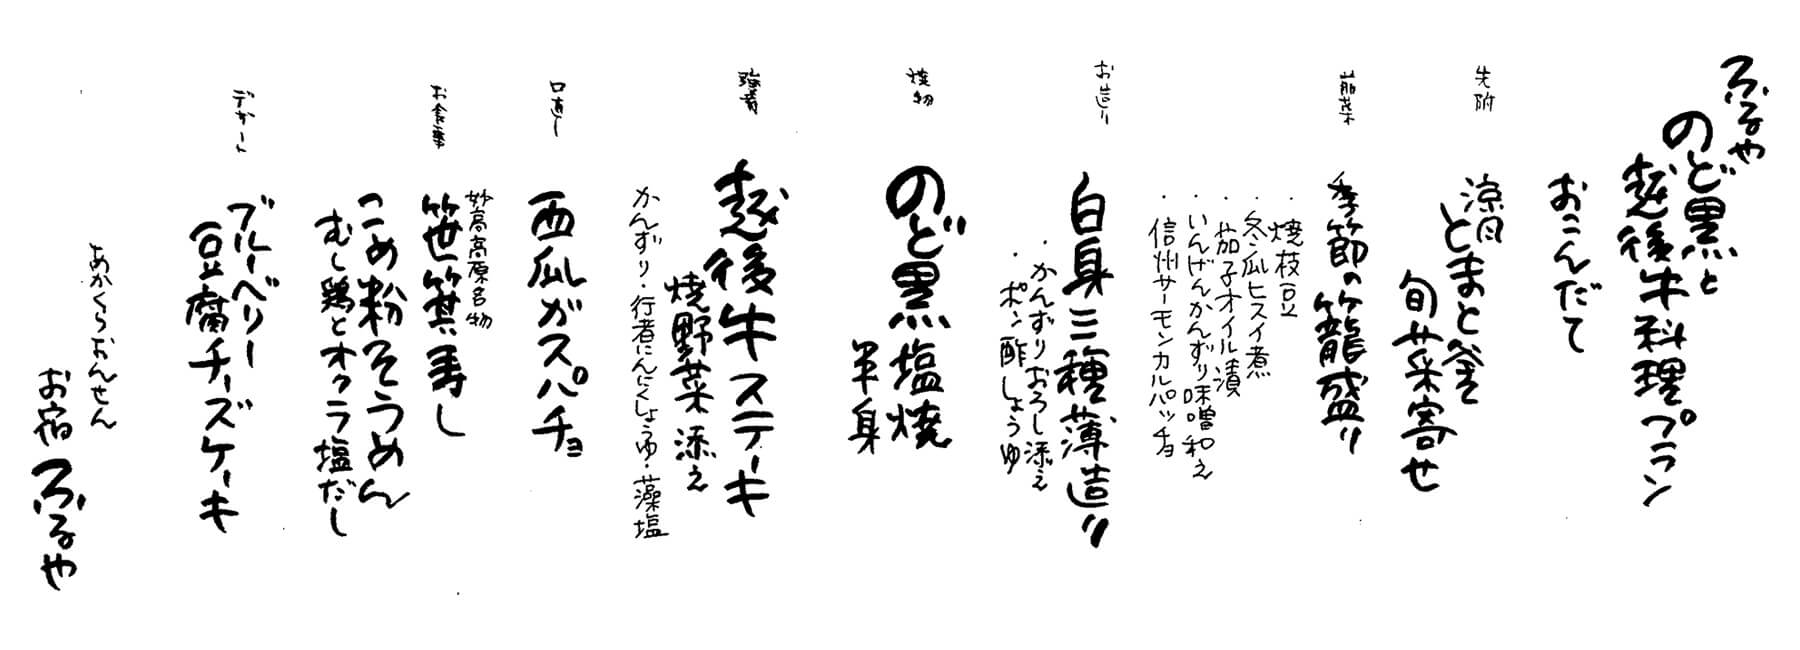 ふるや
のど黒と
越後牛料理プラン
おこんだて
先附
涼月
とまと釜
旬菜寄せ
前菜
季節の籠盛り
・焼枝豆
・冬瓜ヒスイ煮
・茄子オイル漬
・いんげんかんずり味噌和え
・信州サーモンカルパッチョ
お造り
白身三種薄造り
・かんずりおろし添え
・ポン酢しょうゆ
焼物
のど黒塩焼
半身
強肴
越後牛ステーキ
焼野菜添え
かんずり・行者にんにくしょうゆ・藻塩
口直し
西瓜ガスパチョ
お食事
妙高高原名物
笹箕寿し
こめ粉そうめん
むし鶏とオクラ塩だし
デザート
ブルーベリー
豆腐チーズケーキ
あかくらおんせん
お宿 ふるや